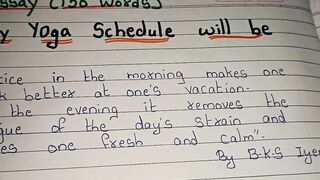 ssay (150 words)
y Yoga Schedule will be
tice in the morning makes one
k better at one's vacation.
the evening it removes the
gue of the day's strain and
es one fresh and calm".
By B.K.S Iyen